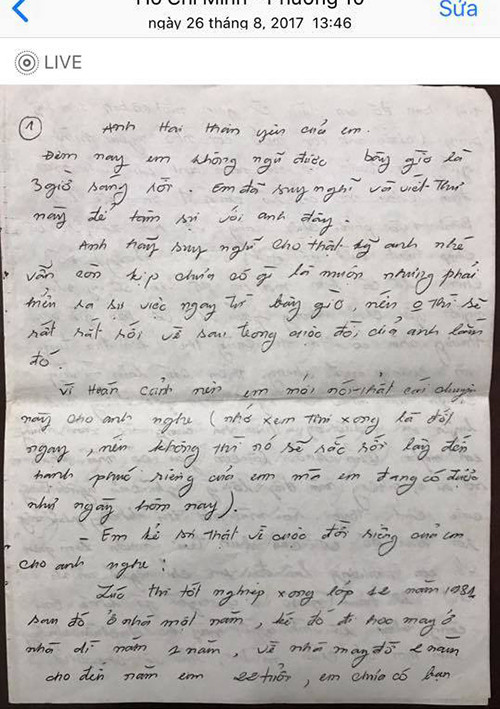 Hồ Chí Minh - Phường 10
ngày 26 tháng 8, 2017 13:46
Sửa
LIVE
1
Anh Hai thân yêu của em.
Đêm nay em không ngủ được bây giờ là
3 giờ sáng rồi. Em đã suy nghĩ và viết thư
này để tâm sự với anh đây.
Anh hãy suy nghĩ cho thật kỹ anh nhé
vẫn còn kịp chưa có gì là muộn nhưng phải
hiểu ra sự việc ngay từ bây giờ, nếu o thì sẽ
rất rắc rối về sau trong cuộc đời của anh lắm
đó.
Vì hoàn cảnh nên em mới nói thật cái chuyện
này cho anh nghe (nhớ xem thư xong là đốt
ngay, nếu không thì nó sẽ rắc rối lây đến
hạnh phúc riêng của em mà em đang có được
như ngày hôm nay).
- Em kể sự thật về cuộc đời riêng của em
cho anh nghe:
Lúc thi tốt nghiệp xong lớp 12 năm 1981
sau đó ở nhà một năm, kế đó đi học may ở
nhà dì năm 1 năm, về nhà may đồ 2 năm
cho đến năm em 22 tuổi, em chưa có bạn